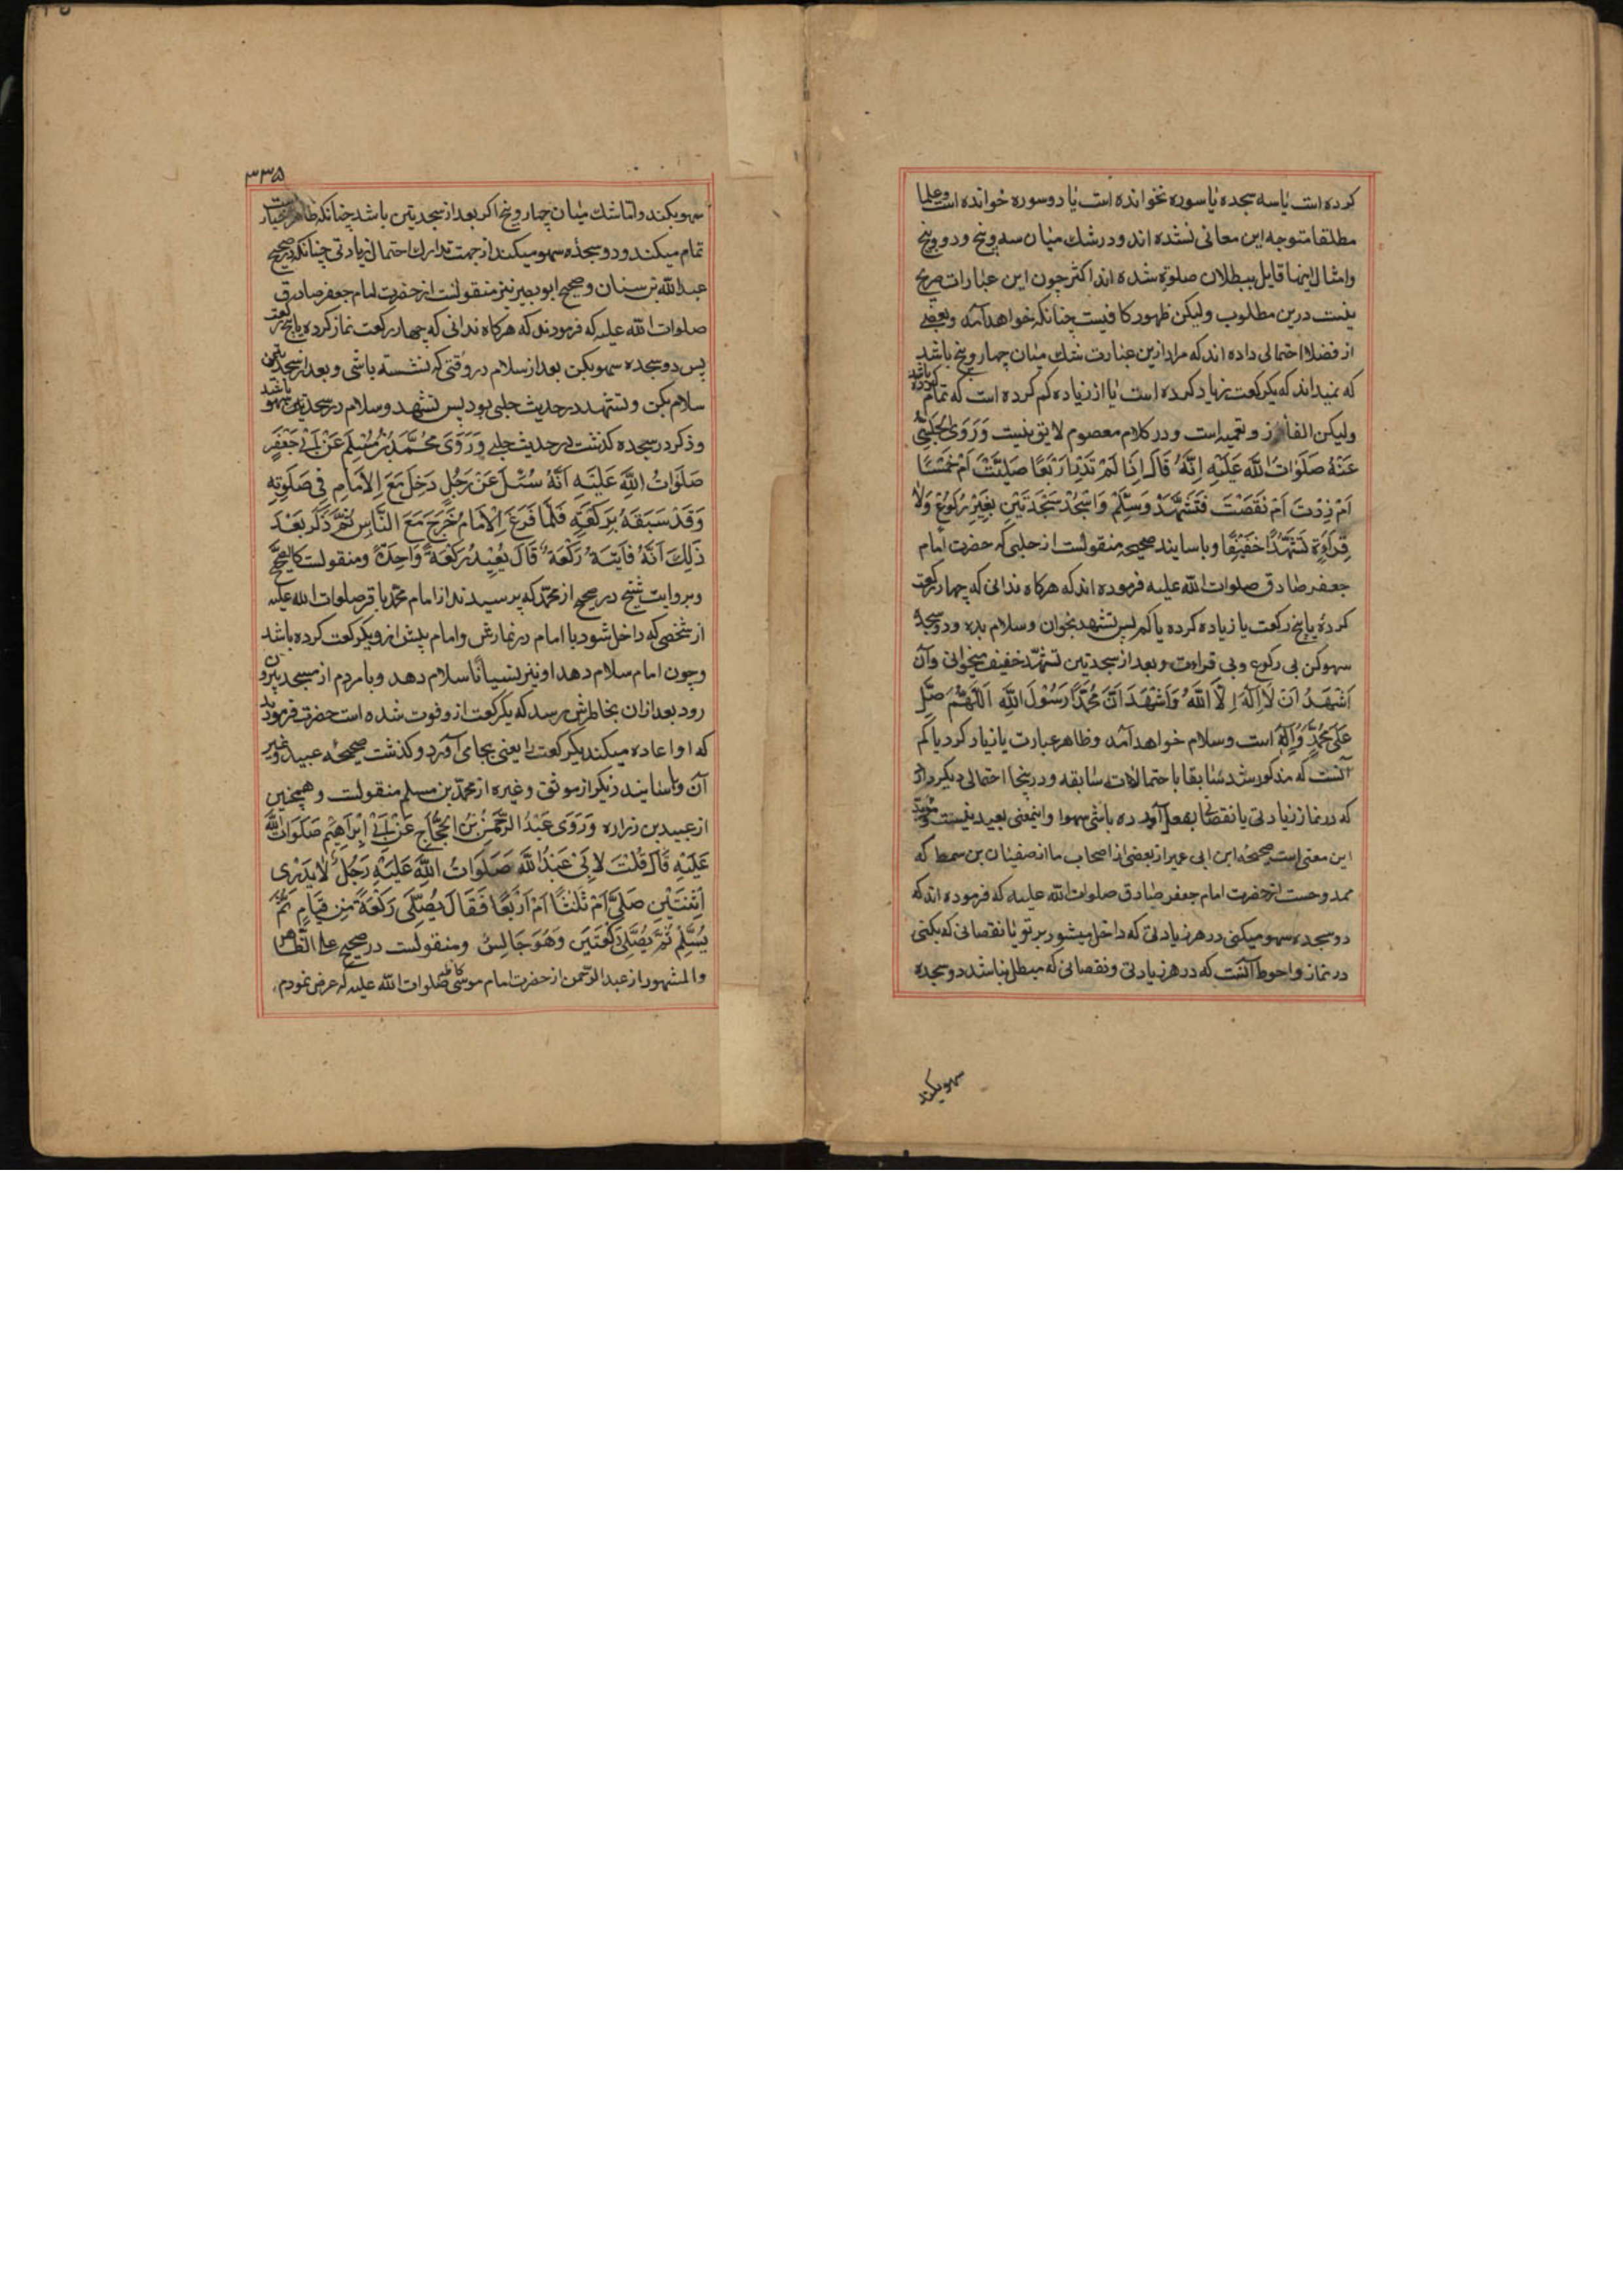 کرده است یا سه سجده یا سوره نخوانده است یا دو سوره خوانده است و علما
مطلقا متوجه این معانی نشده اند و در شك میان سه و پنج و دو و پنج
و امثال اینها قایل ببطلان صلوة شده اند اکثر چون این عبارات صریح
نیست درین مطلوب و لیکن ظهور کافیست چنانکه خواهد آمد و بعضی
از فضلا احتمالی داده اند که مراد ازین عبارت شك میان چهار و پنج باشد
که نمیداند که یکرکعت زیاد کرده است یا از زیاده کم کرده است که تمام کرده باشد
و لیکن الغاز و تعمیه است و در کلام معصوم لایق نیست وَرَوَی الْحَلَبِیُّ
عَنْهُ صَلَوَاتُ اللّٰهِ عَلَیْهِ اِنَّهُ قَالَ اِذَا لَمْ تَدْرِ اَرْبَعًا صَلَّیْتَ اَمْ خَمْسًا
اَمْ زِدْتَ اَمْ نَقَصْتَ فَتَشَهَّدْ وَسَلِّمْ وَاسْجُدْ سَجْدَتَیْنِ بِغَیْرِ رُکُوعٍ وَلَا
قِرَاءَةٍ تَشَهُّدًا خَفِیْفًا و باسانید صحیحه منقولست از حلبی که حضرت امام
جعفر صادق صلوات الله علیه فرموده اند که هرکاه ندانی که چهار رکعت
کردهٔ یا پنج رکعت یا زیاده کرده یا کم پس تشهد بخوان و سلام بده و دو سجدهٔ
سهو کن بی رکوع و بی قراءت و بعد از سجدتین تشهّد خفیف میخوانی و آن
اَشْهَدُ اَنْ لَا اِلٰهَ اِلَّا اللّٰهُ وَاَشْهَدُ اَنَّ مُحَمَّدًا رَسُوْلُ اللّٰهِ اَللّٰهُمَّ صَلِّ
عَلَی مُحَمَّدٍ وَاٰلِهِ است و سلام خواهد آمد و ظاهر عبارت یا زیاد کرد یا کم
آنست که مذکور شد سابقا با احتمالات سابقه و در ینجا احتمالی دیکر دارد
که در نماز زیادتی یا نقصانی بعمل آورده باشی سهوا و اینمعنی بعید نیست و مؤید
این معنی است صحیحهٔ ابن ابی عمیر از بعضی از اصحاب ما از سفیان بن سمط که
ممدوحست از حضرت امام جعفر صادق صلوات الله علیه که فرموده اند که
دو سجده سهو میکنی در هر زیادتی که داخل میشود بر تو یا نقصانی که بکنی
در نماز و احوط آنست که در هر زیادتی و نقصانی که مبطل نباشد دو سجده
سهو بکند
۳۳۵
سهو بکند و اما شك میان چهار و پنج اکر بعد از سجدتین باشد چنانکه ظاهر اخبار است
تمام میکند و دو سجده سهو میکند از جهت تدارك احتمال زیادتی چنانکه در صحیح
عبدالله بن سنان و صحیح ابوبصیر نیز منقولست از حضرت امام جعفر صادق
صلوات الله علیه که فرمودند که هرکاه ندانی که چهار رکعت نماز کرده یا پنج رکعت
پس دو سجده سهو بکن بعد از سلام در وقتی که نشسته باشی و بعد از سجدتین
سلام بکن و تشهد در حدیث حلبی بود پس تشهد و سلام در سجدتین سهو باشد
و ذکر در سجده کذشت در حدیث حلبی وَرَوَی مُحَمَّدُ بْنُ مُسْلِمٍ عَنْ اَبِیْ جَعْفَرٍ
صَلَوَاتُ اللّٰهِ عَلَیْهِ اَنَّهُ سُئِلَ عَنْ رَجُلٍ دَخَلَ مَعَ الْاِمَامِ فِی صَلٰوتِهِ
وَقَدْ سَبَقَهُ بِرَکْعَةٍ فَلَمَّا فَرَغَ الْاِمَامُ خَرَجَ مَعَ النَّاسِ ثُمَّ ذَکَرَ بَعْدَ
ذٰلِكَ اَنَّهُ فَاتَتْهُ رَکْعَةٌ قَالَ یُعِیْدُ رَکْعَةً وَاحِدَةً و منقولست کالصحیح
و بروایت شیخ در صحیح از محمد که پرسیدند از امام محمد باقر صلوات الله علیه
از شخصی که داخل شود با امام در نمازش و امام پیش ازو یکرکعت کرده باشد
و چون امام سلام دهد او نیز نسیانًا سلام دهد و با مردم از مسجد بیرون
رود بعد ازان بخاطرش رسد که یکرکعت ازو فوت شده است حضرت فرمودند
که او اعاده میکند یکرکعت را یعنی بجا می آورد و کذشت صحیحهٔ عبید و غیر
آن و باسانید دیکر از موثق و غیره از محمد بن مسلم منقولست و همچنین
از عبید بن زراره وَرَوَی عَبْدُ الرَّحْمٰنِ بْنُ الْحَجَّاجِ عَنْ اَبِیْ اِبْرَاهِیْمَ صَلَوَاتُ اللّٰهِ
عَلَیْهِ قَالَ قُلْتُ لِاَبِیْ عَبْدِ اللّٰهِ صَلَوَاتُ اللّٰهِ عَلَیْهِ رَجُلٌ لَا یَدْرِی
اَثْنَتَیْنِ صَلَّی اَمْ ثَلٰثًا اَمْ اَرْبَعًا فَقَالَ یُصَلِّی رَکْعَةً مِنْ قِیَامٍ ثُمَّ
یُسَلِّمُ ثُمَّ یُصَلِّی رَکْعَتَیْنِ وَهُوَ جَالِسٌ و منقولست در صحیح علی الظاهر
و المشهور از عبد الرحمن از حضرت امام موسی کاظم صلوات الله علیه که عرض نمودم